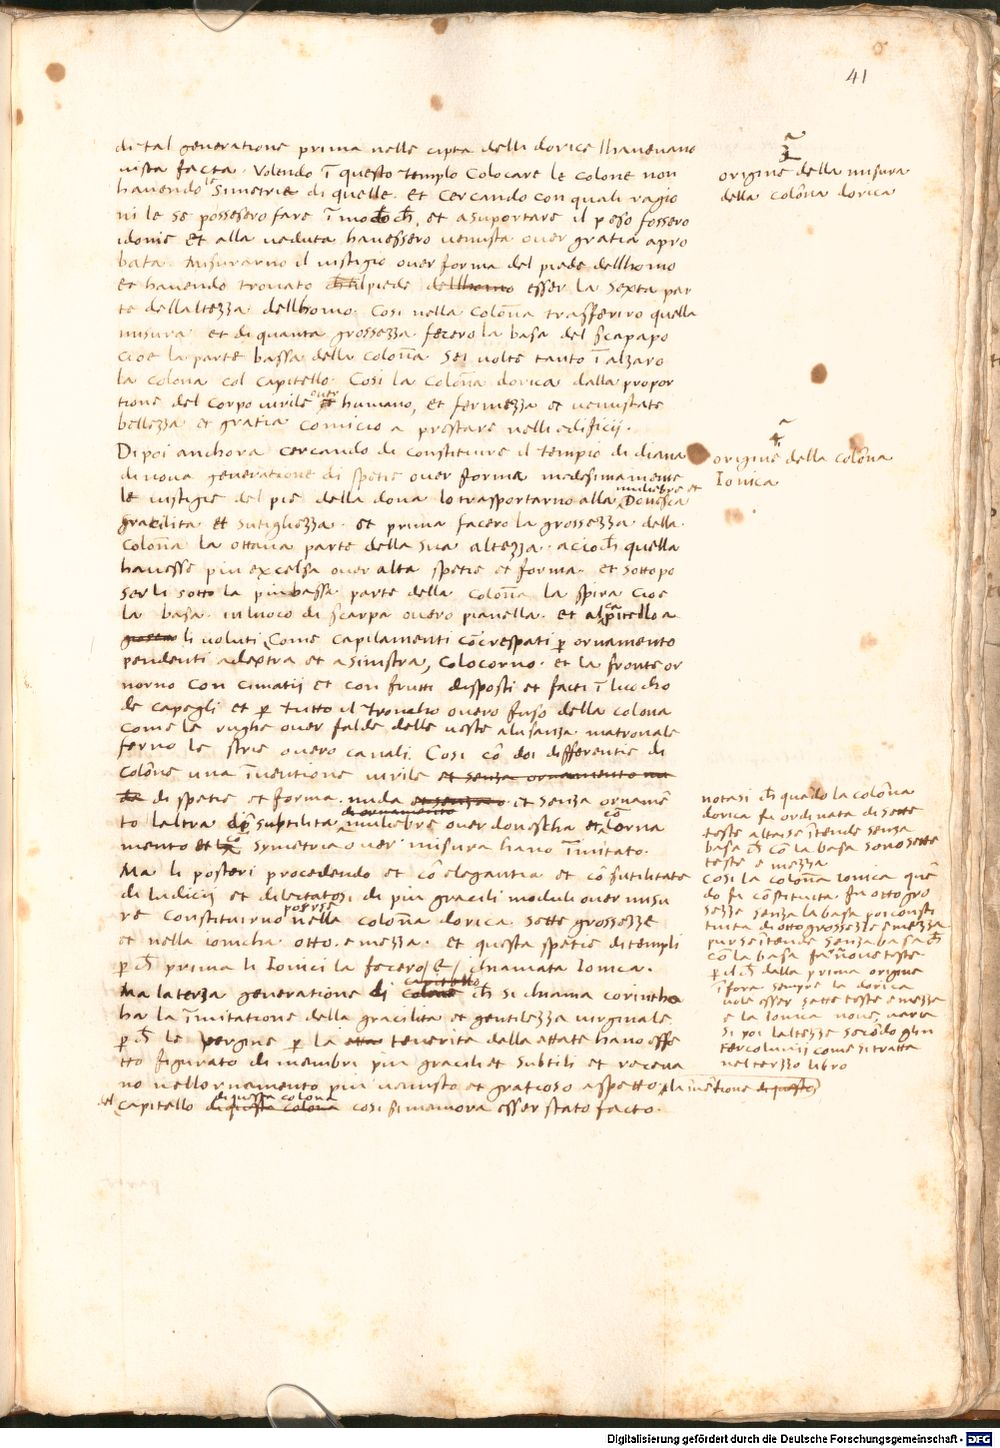 41
di tal generatione prima nelle cipta delli dorice lhavevano
vista facta. Volendo ĩ questo templo Colocare le colone non
havendo le Simetrie di quelle. et Cercando con quali ragio
ni le se possesero fare ĩ modo ch̃, et a suportare il peso fossero
idonie et alla veduta havessero venusta over gratia apro
bata. Misurarno il vistigio over forma del piede dellhomo
et havendo trovato piede dellhomo esser la sexta par
te dellaltezza dellhomo. Cosi nella Colõna trasferiro quella
misura. et di quanta grossezza fecero la basa del scapapo
cioe la parte bassa della colona Sei volte tanto ĩ alzaro
la colona col capitello. Cosi la Colõna dorica dalla propor
tione del Corpo virile over humano, et fermezza et venustate
bellezza et gratia Comicio a prestare nelli edificij.
Di poi anchora Cercando di constituire il tempio di diana
di nova generatione di spetie over forma medesimamente
muliebre et
le vistigie del pie della dona lo trasportarno alla Donesca
gracilita et sutigliezza. et prima facero la grossezza della
Colõna la ottava parte della sua altezza. acioch̃ quella
havesse piu excelsa over alta spetie et forma. et sottopo
serli sotto la piu bassa parte della Colõna la spira Cioe
la basa. in luoco di scarpa overo pianella. et al capitello a
li voluti, Come Capilamenti cõcrespati p̱ ornamento
pendenti adextra et asinistra, Colocorno. et la fronte or
norno Con Cimatij et con frutti disposti et facti ĩ luocho
de Capegli et p̱ tutto il troncho overo fuso della colona
Come le rughe over falde delle veste alusanza matronale
ferno le strie overo canali. Cosi cõ doi differentie di
Colõne una ĩventione virile et senza ornamento nu
da di spetie et forma. nuda et senza ornamẽ
di ornamento
to laltra subtilita muliebre over donescha et cõ orna
mento et Symetria over misura hano ĩmitato.
Ma li posteri procedendo et cõ elegantia et cõ sutilitate
di Iudicij et dilectatosi di piu gracili moduli over misu
re Constituirno nella colona dorica. Sette grossezze
et nella ionicha. otto. e mezza. et questa spetie di templi
p̱ ch̃ prima li Ionici la fecero / e / chiamata Ionica.
capitello
Ma la terza generatione di colone ch̃ si chiama corintha
ha la ĩmitatione della gracilita et gentilezza virginale
p̱ ch̃ le vergine p̱ la tenerita della ettate hano effe
tto figurato di membri piu gracili et subtili et receva
no nellornamento piu venusto et gratioso aspetto, la invẽtione di questo
di questa colona
del Capitello di questa colona cosi si memora esser stato facto.
3
origine della misura
della colõna dorica
4
origine della colõna
Ionica
notasi ch̃ quãdo la colõna
dorica fu ordinata di sette
teste alta se ĩtende senza
basa ch̃ cõ la basa sono sette
teste e mezza
Cosi la colona ionica quẽ
do fu cõstituita fu otto gro
sezze senza la basa poi consti
tuita di otto grossezze e mezza
pur se ĩtende senza basa ch̃
cõ la basa fa nove teste
p̱ il ch̃ dalla prima origine
ĩ fora sempre la dorica
vole esser sette teste e mezza
e la Ionica nove, varia
si poi laltezze secõdo gli in
tercolunij come si tratta
nel terzo libro
Digitalisierung gefördert durch die Deutsche Forschungsgemeinschaft - DFG